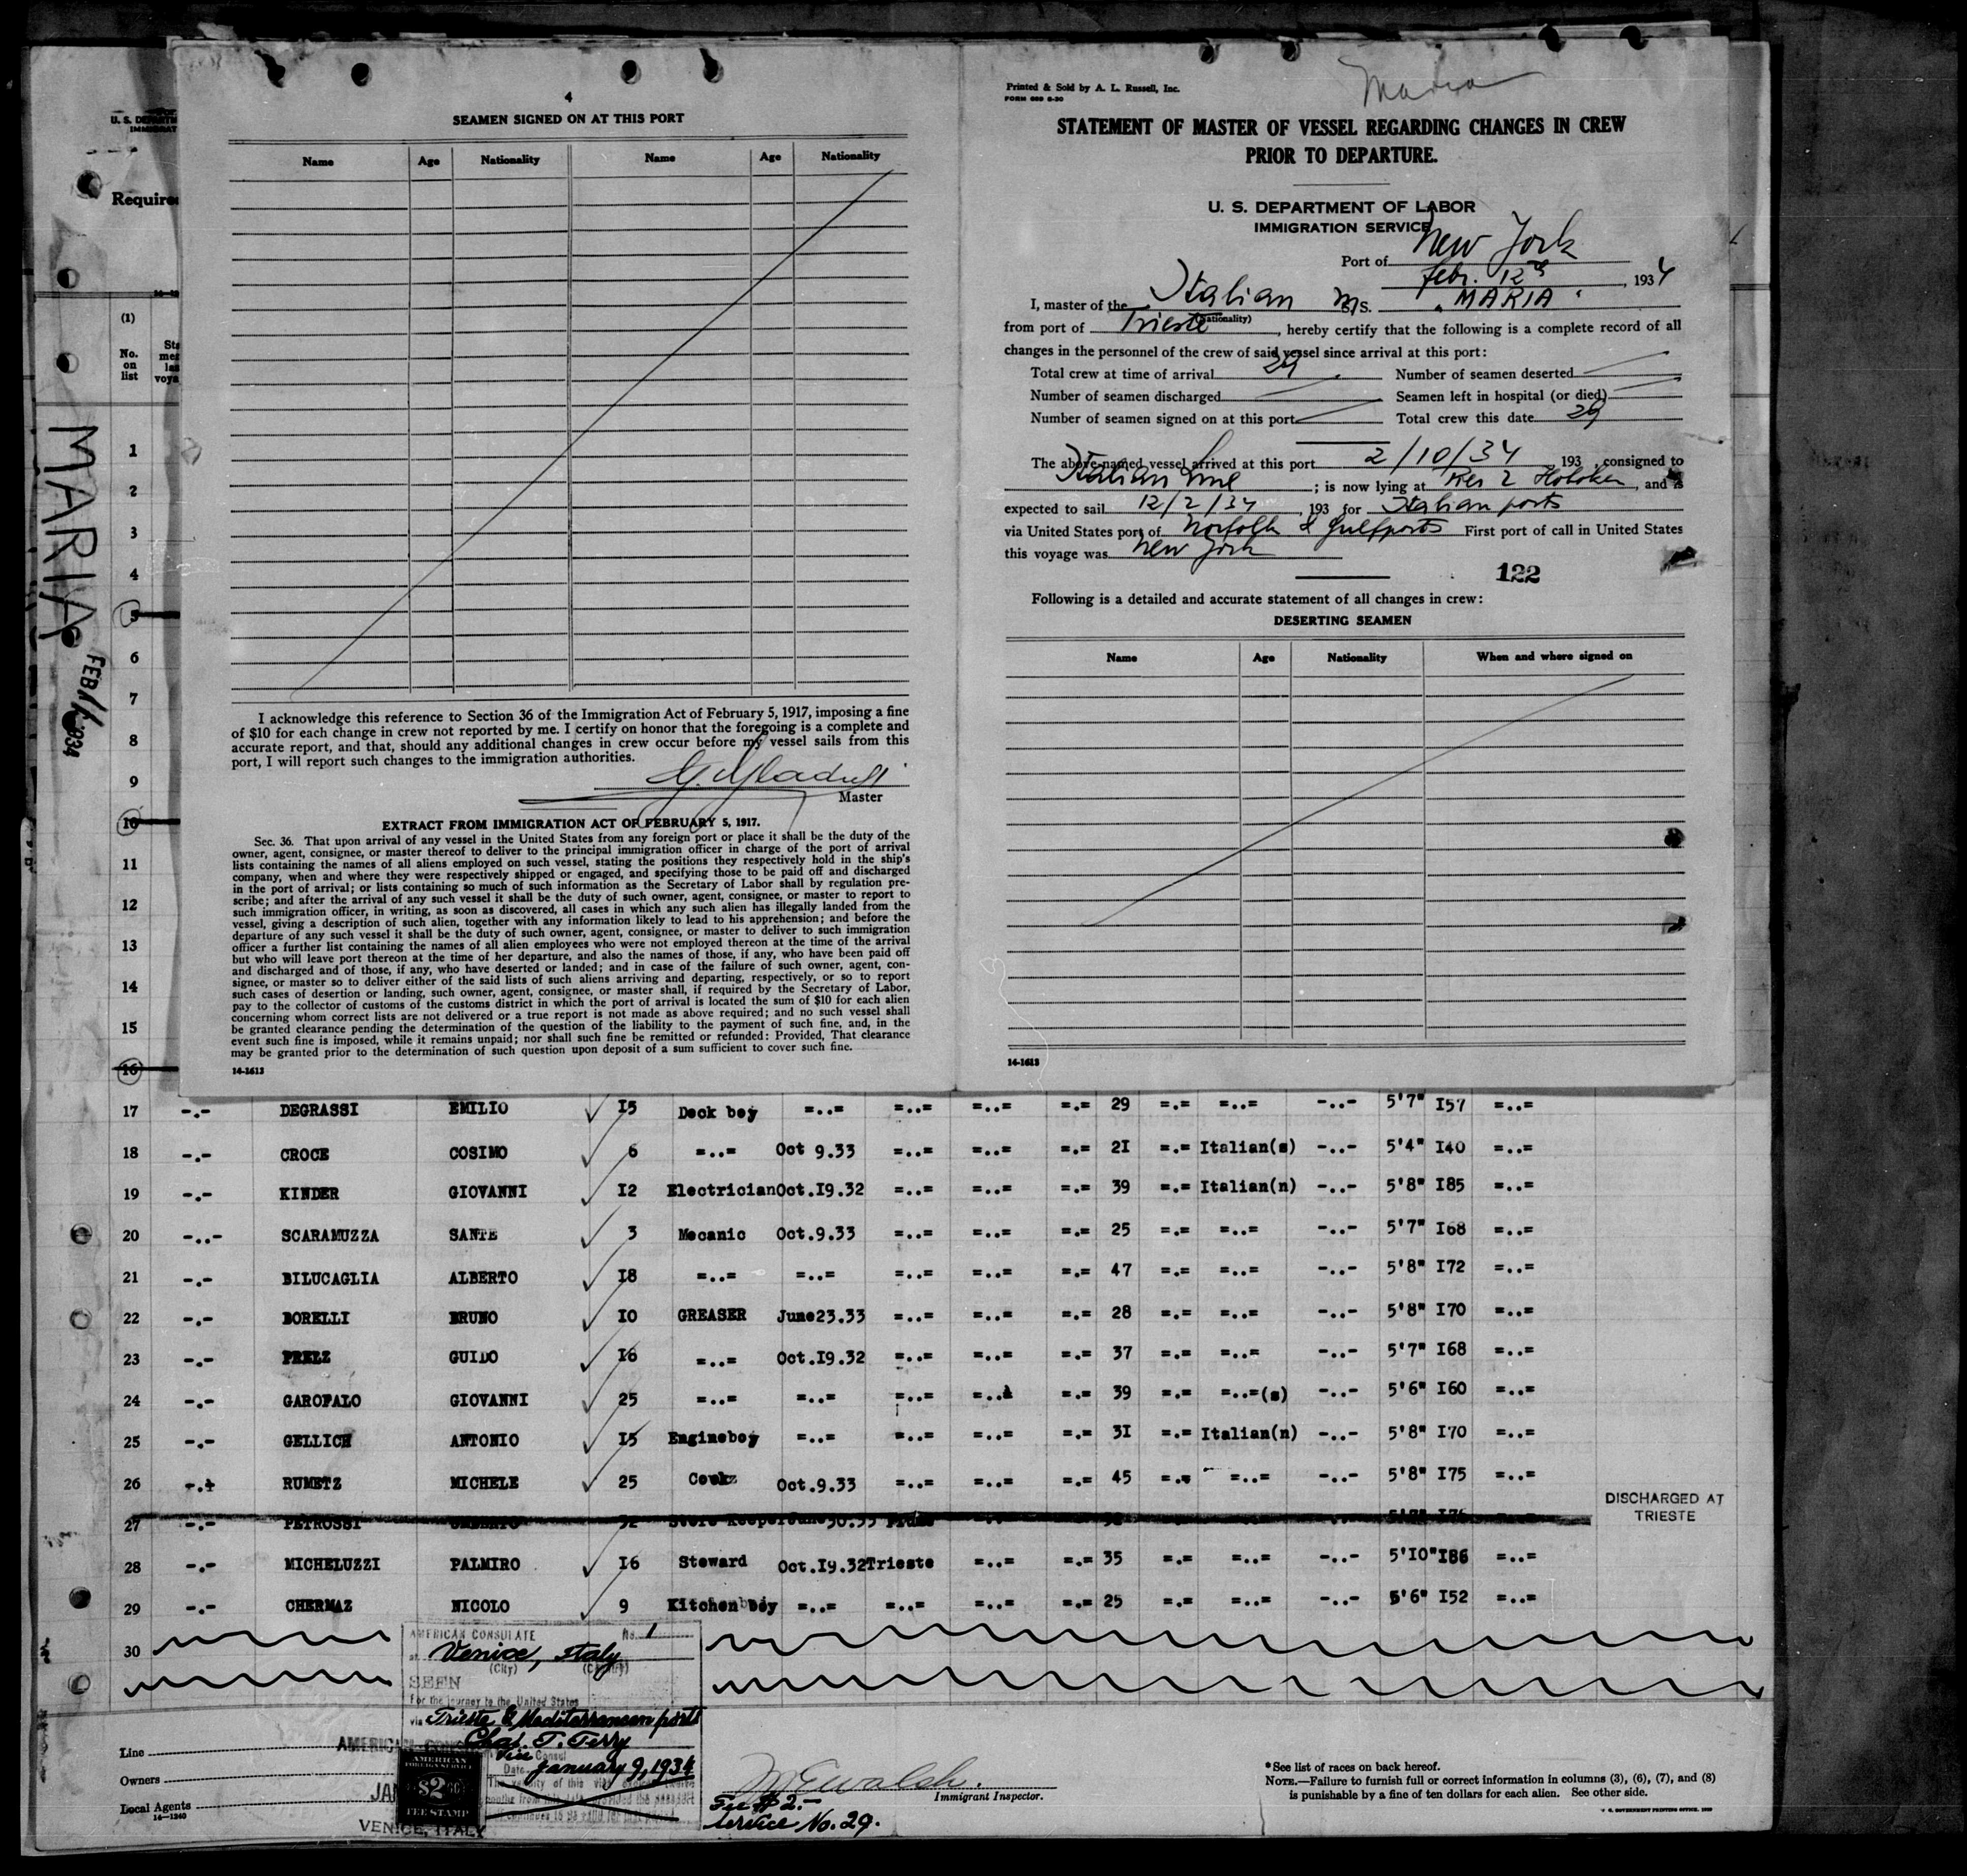 4
SEAMEN SIGNED ON AT THIS PORT
Name Age Nationality Name Age Nationality
I acknowledge this reference to Section 36 of the Immigration Act of February 5, 1917, imposing a fine
of $10 for each change in crew not reported by me. I certify on honor that the foregoing is a complete and
accurate report, and that, should any additional changes in crew occur before my vessel sails from this
port, I will report such changes to the immigration authorities.
Master
EXTRACT FROM IMMIGRATION ACT OF FEBRUARY 5, 1917.
Sec. 36. That upon arrival of any vessel in the United States from any foreign port or place it shall be the duty of the
owner, agent, consignee, or master thereof to deliver to the principal immigration officer in charge of the port of arrival
lists containing the names of all aliens employed on such vessel, stating the positions they respectively hold in the ship's
company, when and where they were respectively shipped or engaged, and specifying those to be paid off and discharged
in the port of arrival; or lists containing so much of such information as the Secretary of Labor shall by regulation pre-
scribe; and after the arrival of any such vessel it shall be the duty of such owner, agent, consignee, or master to report to
such immigration officer, in writing, as soon as discovered, all cases in which any such alien has illegally landed from the
vessel, giving a description of such alien, together with any information likely to lead to his apprehension; and before the
departure of any such vessel it shall be the duty of such owner, agent, consignee, or master to deliver to such immigration
officer a further list containing the names of all alien employees who were not employed thereon at the time of the arrival
but who will leave port thereon at the time of her departure, and also the names of those, if any, who have been paid off
and discharged and of those, if any, who have deserted or landed; and in case of the failure of such owner, agent, con-
signee, or master so to deliver either of the said lists of such aliens arriving and departing, respectively, or so to report
such cases of desertion or landing, such owner, agent, consignee, or master shall, if required by the Secretary of Labor,
pay to the collector of customs of the customs district in which the port of arrival is located the sum of $10 for each alien
concerning whom correct lists are not delivered or a true report is not made as above required; and no such vessel shall
be granted clearance pending the determination of the question of the liability to the payment of such fine, and, in the
event such fine is imposed, while it remains unpaid; nor shall such fine be remitted or refunded: Provided, That clearance
may be granted prior to the determination of such question upon deposit of a sum sufficient to cover such fine.
14-1613
Maria
Printed & Sold by A. L. Russell, Inc.
FORM 689 6-30
STATEMENT OF MASTER OF VESSEL REGARDING CHANGES IN CREW
PRIOR TO DEPARTURE.
U. S. DEPARTMENT OF LABOR
IMMIGRATION SERVICE
Port of New York
Febr. 12th, 1934
I, master of the Italian M/S. "MARIA"
(Nationality)
from port of Trieste, hereby certify that the following is a complete record of all
changes in the personnel of the crew of said vessel since arrival at this port:
Total crew at time of arrival 29 Number of seamen deserted
Number of seamen discharged Seamen left in hospital (or died)
Number of seamen signed on at this port Total crew this date 29
The above-named vessel arrived at this port 2/10/34 193 , consigned to
Italian Line ; is now lying at Pier 2 Hoboken, and is
expected to sail 12/2/34, 193 for Italian ports
via United States port of Norfolk & Gulfports First port of call in United States
this voyage was New York
122
Following is a detailed and accurate statement of all changes in crew:
DESERTING SEAMEN
Name Age Nationality When and where signed on
14-1613
Require
(1)
No. on list
MARIA
FEB
1
2
3
4
5
6
7
8
9
10
11
12
13
14
15
16
17 -.- DEGRASSI EMILIO 15 Deck boy =..= =..= =..= =.= 29 =.= =..= -..- 5'7" I57 =..=
18 -.- CROCE COSIMO 6 =..= Oct 9.33 =..= =..= =.= 2I =.= Italian(s) -..- 5'4" I40 =..=
19 -.- KINDER GIOVANNI I2 Electrician Oct.I9.32 =..= =..= =.= 39 =.= Italian(n) -..- 5'8" I85 =..=
20 -..- SCARAMUZZA SANTE 3 Mecanic Oct.9.33 =..= =..= =.= 25 =.= =..= -..- 5'7" I68 =..=
21 -.- BILUCAGLIA ALBERTO I8 =..= =..= =..= =..= =.= 47 =.= =..= -..- 5'8" I72 =..=
22 -.- BORELLI BRUNO I0 GREASER June23.33 =..= =..= =.= 28 =.= =..= -..- 5'8" I70 =..=
23 -.- PRELZ GUIDO I6 =..= Oct.I9.32 =..= =..= =.= 37 =.= =..= -..- 5'7" I68 =..=
24 -.- GAROFALO GIOVANNI 25 =..= =..= =..= =..= =.= 39 =.= =..=(s) -..- 5'6" I60 =..=
25 -.- GELLICH ANTONIO I5 Engineboy =..= =..= =..= =.= 3I =.= Italian(n) -..- 5'8" I70 =..=
26 -.- RUMETZ MICHELE 25 Cook Oct.9.33 =..= =..= =.= 45 =.= =..= -..- 5'8" I75 =..=
27 -.- PETROSSI UMBERTO 32 Store Keeper June30.33 Fiume
DISCHARGED AT
TRIESTE
28 -.- MICHELUZZI PALMIRO I6 Steward Oct.I9.32 Trieste =..= =.= 35 =.= =..= -..- 5'I0" I86 =..=
29 -.- CHERMAZ NICOLO 9 Kitchen boy =..= =..= =..= =.= 25 =.= =..= -..- 5'6" I52 =..=
30
AMERICAN CONSULATE No. 1
at Venice, Italy
(City) (Country)
SEEN
For the journey to the United States
via Trieste & Mediterranean ports
Chas. T. Terry
Vice Consul
Date January 9, 1934
AMERICAN
FOREIGN SERVICE
$2
FEE STAMP
VENICE, ITALY
Fee $2.-
Service No. 29.
Line
Owners
Local Agents
14-1240
Immigrant Inspector.
*See list of races on back hereof.
NOTE.—Failure to furnish full or correct information in columns (3), (6), (7), and (8)
is punishable by a fine of ten dollars for each alien. See other side.